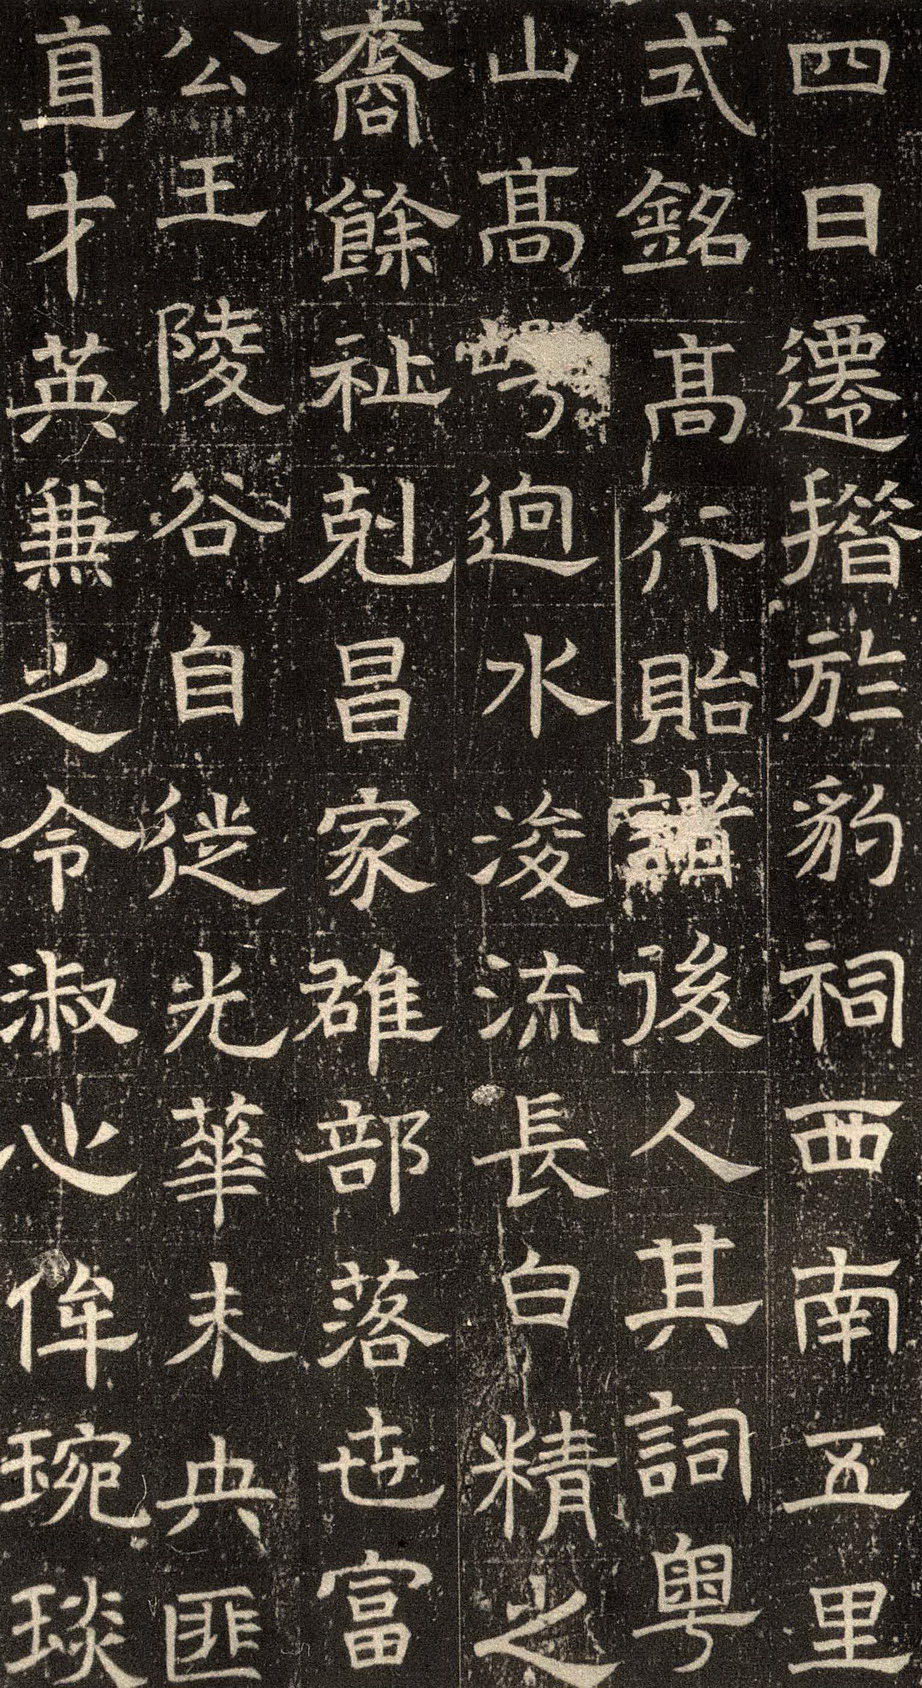 四日遷措於豹祠西南五里
式銘髙行貽諸後人其詞粵
山髙崿迥水浚流長白精之
裔餘祉剋昌家雄部落世富
公王陵谷自徙光華未央匪
直才英兼之令淑心侔琬琰